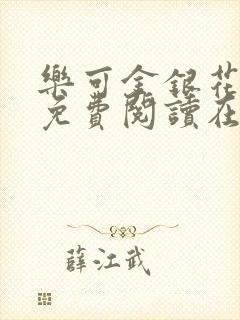 樂可金銀花
免費閱讀在
薛江武